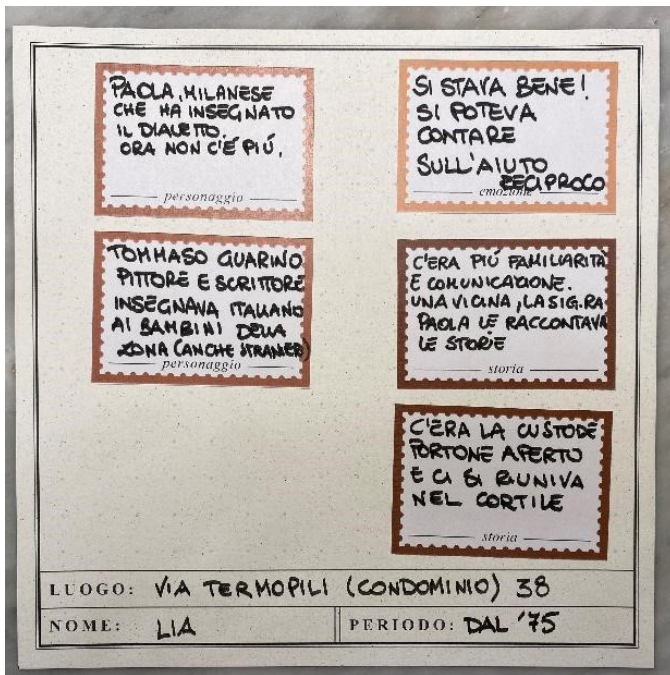 PAOLA, MILANESE
CHE HA INSEGNATO
IL DIALETTO.
ORA NON C'É PIÚ.
personaggio
TOMMASO GUARINO
PITTORE E SCRITTORE
INSEGNAVA ITALIANO
AI BAMBINI DELLA
ZONA (ANCHE STRANIERI)
personaggio
SI STAVA BENE!
SI POTEVA
CONTARE
SULL'AIUTO
RECIPROCO
emozione
C'ERA PIÚ FAMILIARITÀ
E COMUNICAZIONE.
UNA VICINA, LA SIG.RA
PAOLA LE RACCONTAVA
LE STORIE
storia
C'ERA LA CUSTODE
PORTONE APERTO
E CI SI RIUNIVA
NEL CORTILE
storia
LUOGO: VIA TERMOPILI (CONDOMINIO) 38
NOME: LIA PERIODO: DAL '75